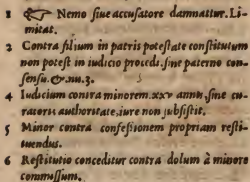 1 ☞ Nemo ſiue accuſatore damnattur. Li-
mitat.
2 Contra filium in patris poteſtate conſtitutum
non poteſt in iudicio procedi, ſine paterno con-
ſenſu. & .nu.3.
4 Iudicium contra minorem .xxv annis, ſine cu-
ratoris authoritate, iure non ſubſiſtit.
5 Minor contra confeſsionem propriam reſti-
tuendus.
6 Reſtitutio conceditur contra dolum à minore
commiſſum.